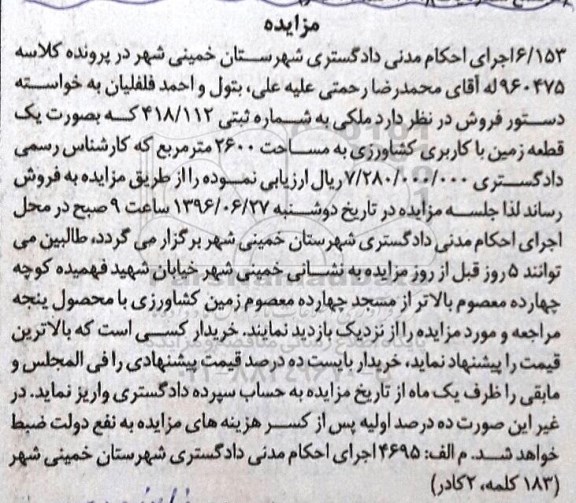 مزایده
۶/۱۵۳اجرای احکام مدنی دادگستری شهرستان خمینی شهر در پرونده کلاسه
۹۶۰۴۷۵له آقای محمدرضا رحمتی علیه علی، بتول و احمد فلفلیان به خواسته
دستور فروش در نظر دارد ملکی به شماره ثبتی ۴۱۸/۱۱۲ که بصورت یک
قطعه زمین با کاربری کشاورزی به مساحت ۲۶۰۰ مترمربع که کارشناس رسمی
دادگستری ۷/۲۸۰/۰۰۰/۰۰۰ ریال ارزیابی نموده را از طریق مزایده به فروش
رساند لذا جلسه مزایده در تاریخ دوشنبه ۱۳۹۶/۰۶/۲۷ ساعت ۹ صبح در محل
اجرای احکام مدنی دادگستری شهرستان خمینی شهر برگزار می گردد، طالبین می
توانند ۵ روز قبل از روز مزایده به نشانی خمینی شهر خیابان شهید فهمیده کوچه
چهارده معصوم بالاتر از مسجد چهارده معصوم زمین کشاورزی با محصول ینجه
مراجعه و مورد مزایده را از نزدیک بازدید نمایند. خریدار کسی است که بالاترین
قیمت را پیشنهاد نماید، خریدار بایست ده درصد قیمت پیشنهادی را فی المجلس و
مابقی را ظرف یک ماه از تاریخ مزایده به حساب سپرده دادگستری واریز نماید. در
غیر این صورت ده درصد اولیه پس از کسر هزینه های مزایده به نفع دولت ضبط
خواهد شد. م الف: ۴۶۹۵ اجرای احکام مدنی دادگستری شهرستان خمینی شهر
(۱۸۳ کلمه، ۲کادر)